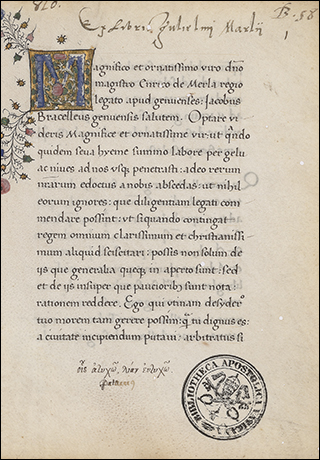 810.
Ex Libris Julielmi Martii
Magnifico et ornatissimo viro dño
magistro Curico de Merla regio
legato apud genuenses: Jacobus
Bracelleus genuensis salutem. Optare vi
deris Magnifice et ornatissime vir: ut qñdo
quidem seva hyeme summo labore per gelu
ac nives ad nos usq; penetrasti: adeo rerum
nrarum edoctus a nobis abscedas: ut nihil
eorum ignores: que diligentiam legati com
mendare possint: ut siquando contingat
regem omnium clarissimum et christianissi
mum aliquid sciscitari: possis non solum de
iis que generalia queq; in aperto sunt: sed
et de iis insuper que paucioribus sunt nota
rationem reddere. Ego qui utinam desyder
tuo morem tam gerere possim: q̃ tu dignus es:
a civitate incipiendum putavi: arbitratus si
BIBLIOTHECA APOSTOLICA VATICANA